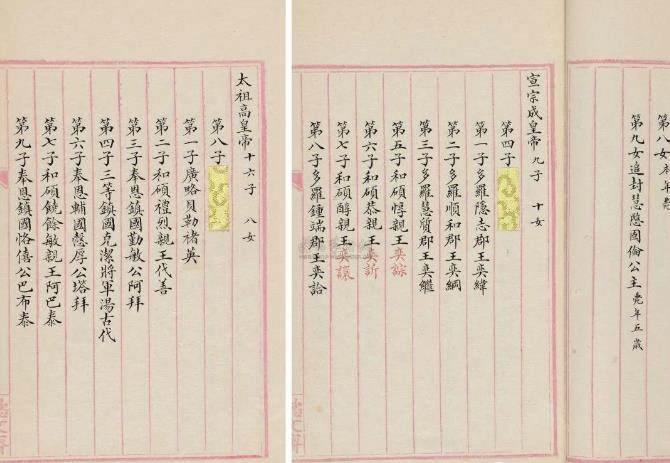 太祖高皇帝 十六子 八女
第八子
第一子廣略貝勒褚英
第二子和碩禮烈親王代善
第三子奉恩鎮國勤敏公阿拜
第四子三等鎮國克潔將軍湯古代
第六子奉恩輔國愨厚公塔拜
第七子和碩饒餘敏親王阿巴泰
第九子奉恩鎮國恪僖公巴布泰
宣宗成皇帝 九子 十女
第四子
第一子多羅隱志郡王奕緯
第二子多羅順和郡王奕綱
第三子多羅慧質郡王奕繼
第五子和碩惇親王奕誴
第六子和碩恭親王奕訢
第七子和碩醇親王奕譞
第八子多羅鍾端郡王奕詥
第八女
第九女追封慧愍固倫公主 薨年五歲